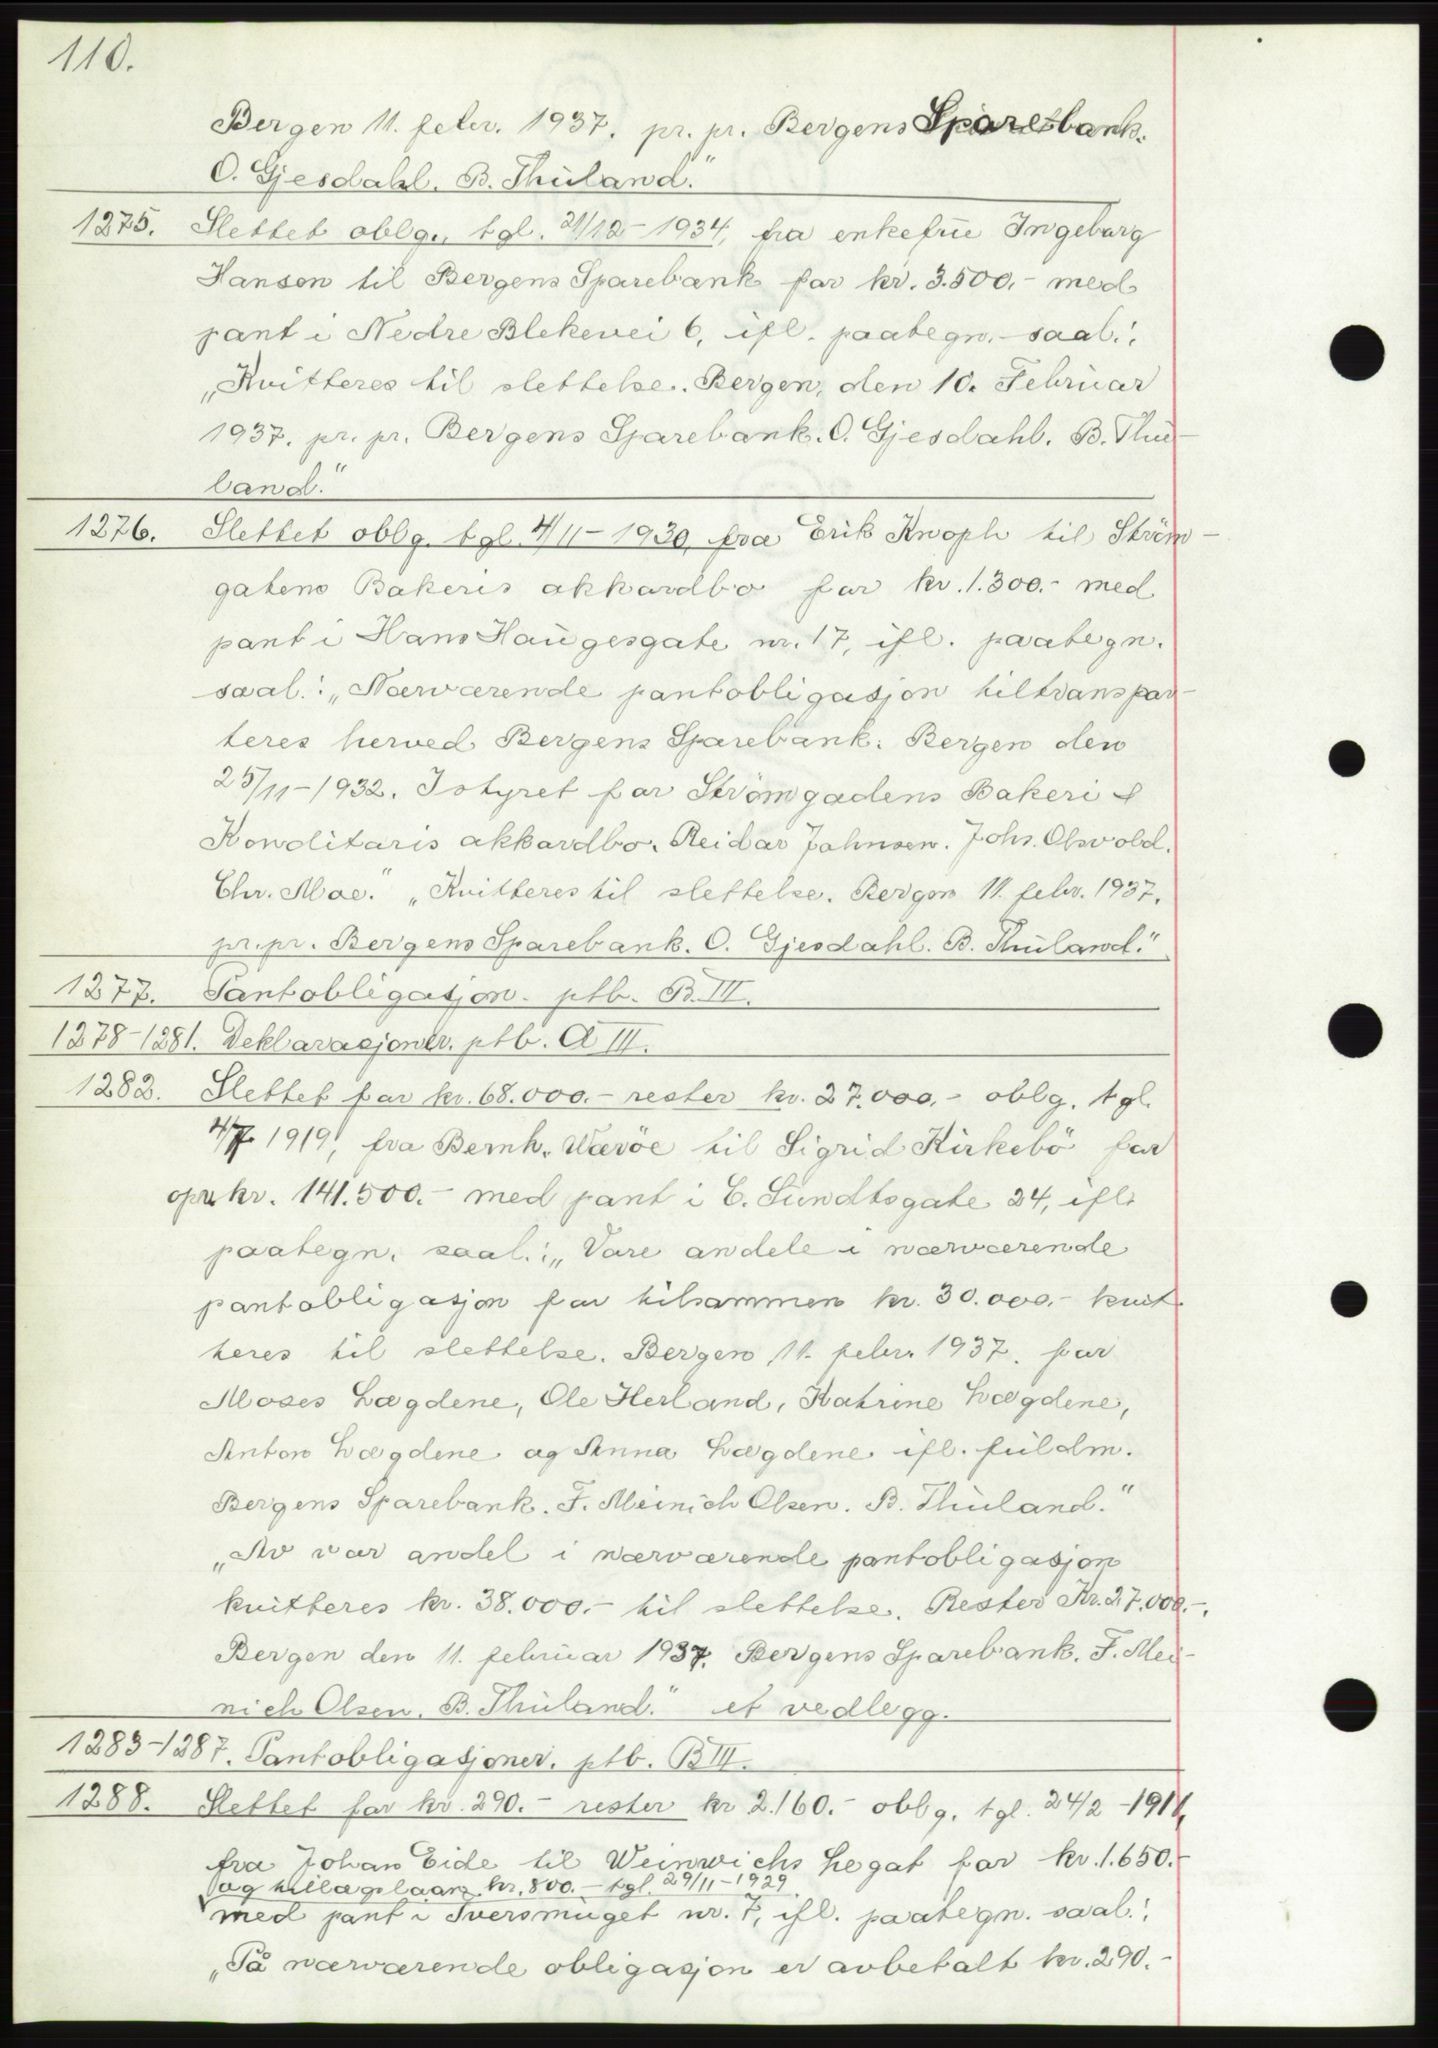 110.
Bergen 11. febr. 1937. pr. pr. Bergens Sparebank.
O. Gjesdahl. B. Thuland."
1275. Slettet oblg., tgl. 21/12-1934, fra enkefrue Ingeborg
Hansen til Bergens Sparebank for kr. 3.500.- med
pant i Nedre Blekevei 6, ifl. paategn. saal.:
„Kvitteres til slettelse. Bergen, den 10. Februar
1937. pr. pr. Bergens Sparebank. O. Gjesdahl. B. Thu-
land."
1276. Slettet oblg. tgl. 4/11-1930, fra Erik Knoph til Ström-
gatens Bakeris akkordbo for kr. 1.300.- med
pant i Hans Haugesgate nr. 17, ifl. paategn.
saal.: „Nærværende pantobligasjon tiltranspor-
teres herved Bergens Sparebank. Bergen den
25/11-1932. I styret for Strömgadens Bakeri &
Konditoris akkordbo. Reidar Johnsen. Johs. Olsvold.
Chr. Moe." „Kvitteres til slettelse. Bergen 11. febr. 1937.
pr. pr. Bergens Sparebank. O. Gjesdahl. B. Thuland."
1277. Pantobligasjon. ptb. B. III.
1278-1281. Deklarasjoner. ptb. A III.
1282. Slettet for kr. 68.000.- rester kr. 27.000.- oblg. tgl.
4/7 1919, fra Bernh. Væröe til Sigrid Kirkebö for
opr. kr. 141.500.- med pant i C. Sundtsgate 24, ifl.
paategn. saal.: „Vore andele i nærværende
pantobligasjon for tilsammen kr. 30.000.- kvit-
teres til slettelse. Bergen 11. febr. 1937. for
Moses Lægdene, Ole Herland, Katrine Lægdene,
Anton Lægdene og Anna Lægdene ifl. fuldm.
Bergens Sparebank. F. Meinich Olsen. B. Thuland."
„Av vor andel i nærværende pantobligasjon
kvitteres kr. 38.000.- til slettelse. Rester Kr. 27.000.-.
Bergen den 11. februar 1937. Bergens Sparebank. F. Mei-
nich Olsen. B. Thuland." et vedlegg.
1283-1287. Pantobligasjoner. ptb. B III.
1288. Slettet for kr. 290.- rester kr 2.160.- oblg. tgl. 24/2-1911,
fra Johan Eide til Weinwichs Legat for kr. 1.650.-
og tillægslaan kr. 800.- tgl. 29/11-1929
med pant i Iversmuget nr. 7, ifl. paategn. saal.:
„På nærværende obligasjon er avbetalt kr. 290.-